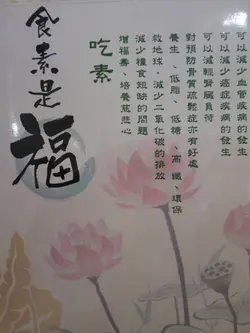 可以減少血管疾病的發生
可以減少癌症疾病的發生
可以減輕腎臟負荷
對預防骨質疏鬆症亦有好處
養生、低脂、低糖、高纖、環保
救地球，減少二氧化碳的排放
減少糧食短缺的問題
增福壽、培養慈悲心
吃素
食素是福